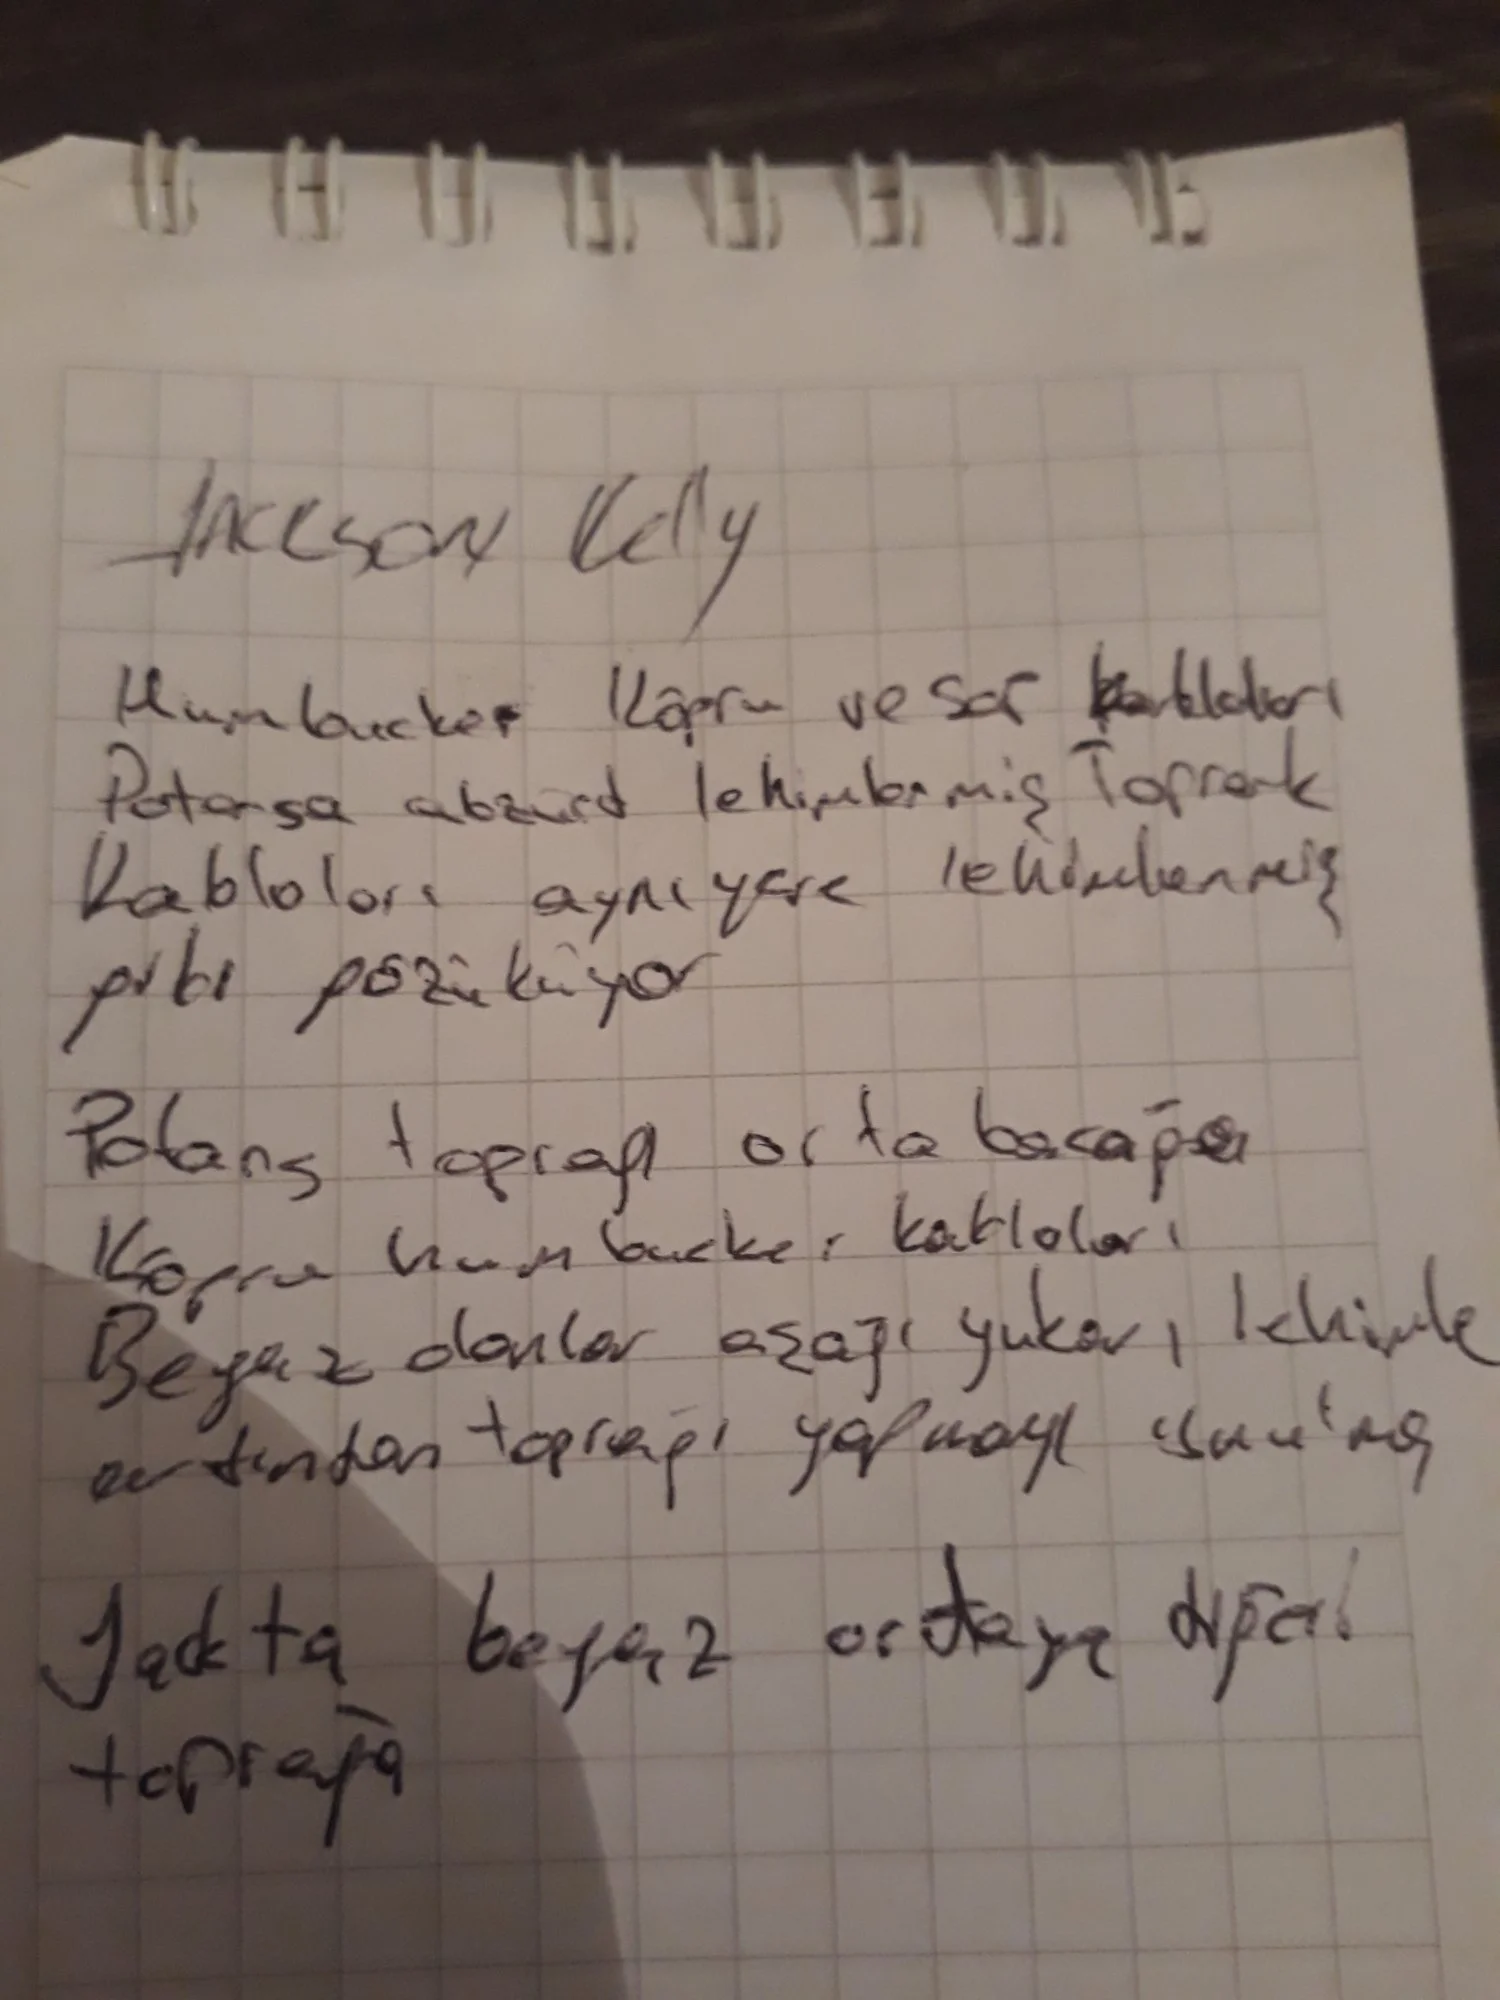 JACKSON Kelly
Humbucker Köprü ve sap kabloları
Potansa abzürd lehimlenmiş Toprak
Kabloları aynı yere lehimlenmiş
gibi gözüküyor
Potans toprağı orta bacağa
Köprü humbucker kabloları
Beyaz olanlar aşağı yukarı lehimle
ardından toprağı yapmayı unutma
Jackta beyaz ortaya diğeri
toprağa